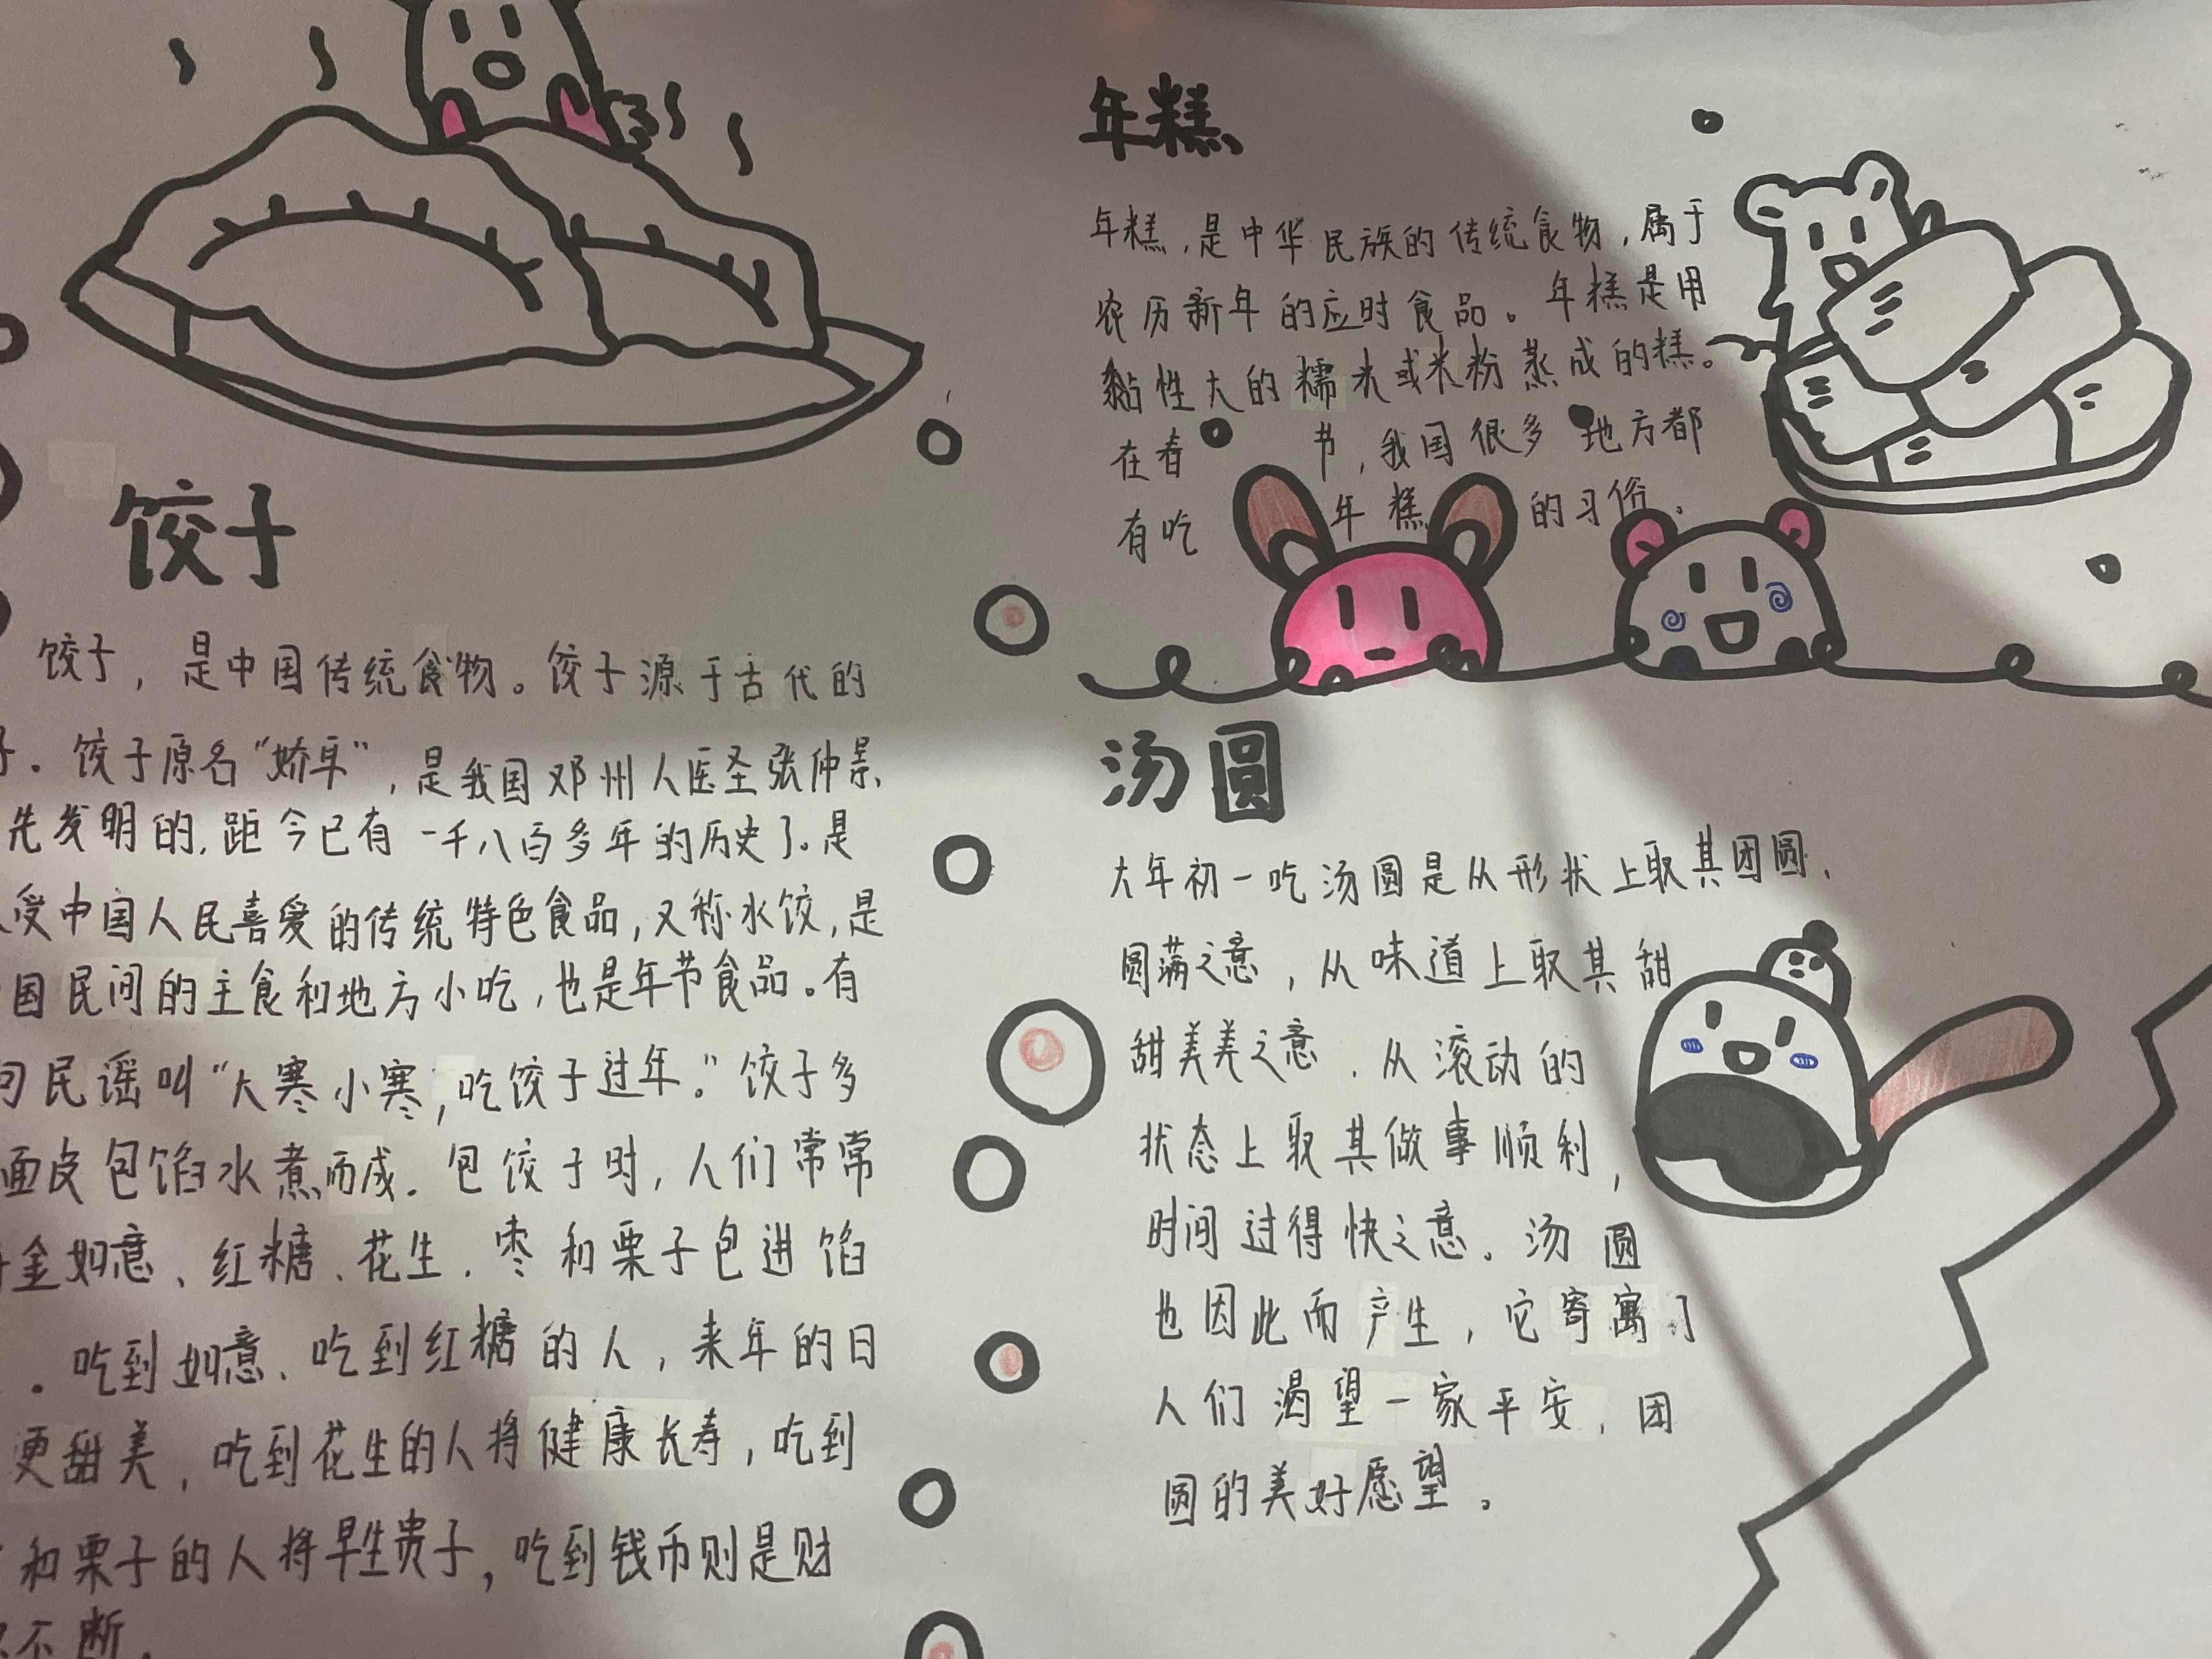 饺子
饺子，是中国传统食物。饺子源于古代的
子。饺子原名“娇耳”，是我国邓州人医圣张仲景
先发明的，距今已有一千八百多年的历史了。是
受中国人民喜爱的传统特色食品，又称水饺，是
国民间的主食和地方小吃，也是年节食品。有
句民谣叫“大寒小寒，吃饺子过年。”饺子多
面皮包馅水煮而成。包饺子时，人们常常
金如意、红糖、花生、枣和栗子包进馅
。吃到如意、吃到红糖的人，来年的日
更甜美，吃到花生的人将健康长寿，吃到
和栗子的人将早生贵子，吃到钱币则是财
不断。
年糕
年糕，是中华民族的传统食物，属于
农历新年的应时食品。年糕是用
黏性大的糯米或米粉蒸成的糕。
在春节，我国很多地方都
有吃年糕的习俗。
汤圆
大年初一吃汤圆是从形状上取其团圆，
圆满之意，从味道上取其甜
甜美美之意，从滚动的
状态上取其做事顺利，
时间过得快之意。汤圆
也因此而产生，它寄寓了
人们渴望一家平安，团
圆的美好愿望。